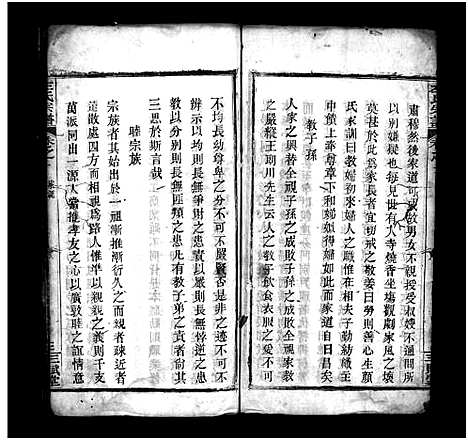 肅穆然後家道可成故男女不親授受叔嫂不通問所
以別嫌疑也每見世有人寺燒香坐塲觀劇家風之壞
莫甚於此爲家長者宜切戒之敬姜曰勞則善心生顏
氏家訓敎婦初來婦人之職在相夫子勤紡織主
中饋上奉尊章下和妯娌得婦如此而家道自日昌矣
敎子孫
人家之興替全視子孫之成敗子孫之成敗全視家敎
之嚴縱王朗川先生云人之敎子飲食衣服之愛不可
不均長幼尊卑之分不可不嚴賢否是非之迹不可不
辨示以均則長無爭財之患責以嚴則長無悖逆之患
敎以分別則長無匪類之患凡有敎子弟之責者尙其
三思於斯言哉
睦宗族
宗族者其始出於一祖漸推漸行久之而親者疎近者
遠散處四方而相視爲路人惟率以親親之義則千支
萬派同出一源人當推孝友之心以廣敦睦之誼情意